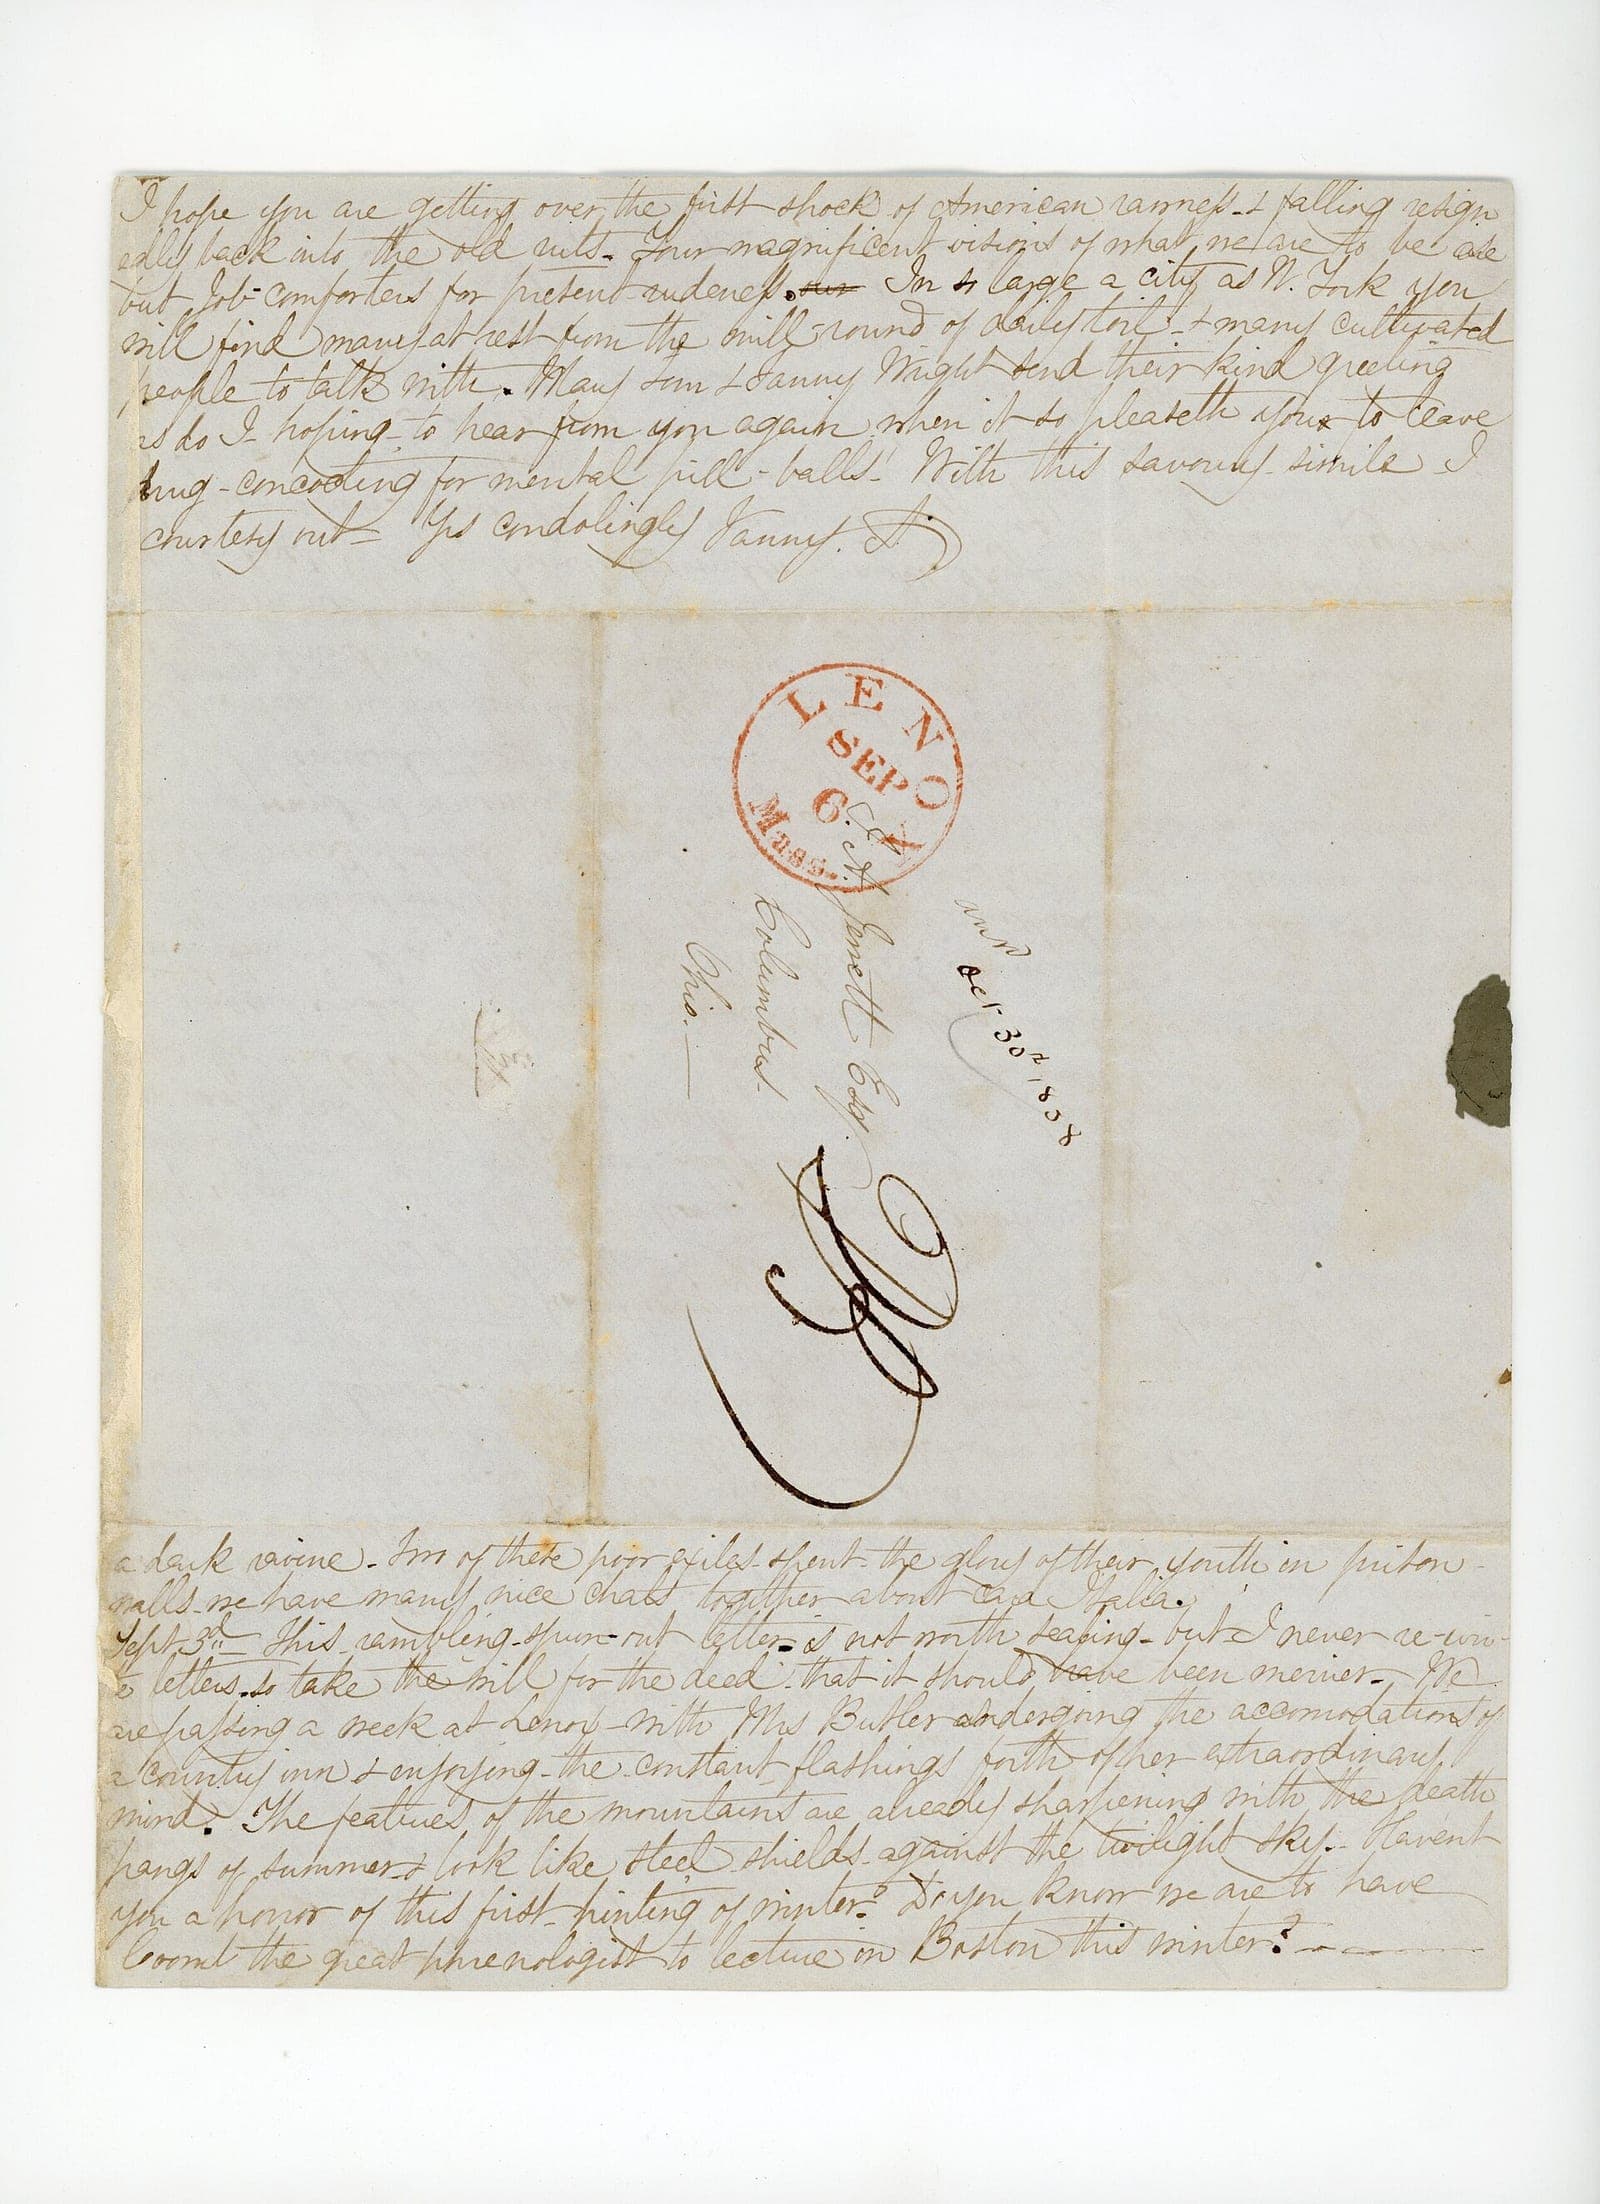 I hope you are getting over the first shock of American rawness - & falling resign
edly back into the old ruts - Your magnificent visions of what we are to be are
but Job-comforters for present rudeness. In so large a city as N. York you
will find many at rest from the mill-round of daily toil - & many cultivated
people to talk with. Mary Tom & Fanny Wright send their kind greeting
as do I - hoping to hear from you again when it so pleaseth you to leave
drug-concocting for mental pill-balls! With this savoury simile I
courtesy out = Yrs condolingly Fanny. A.
LENOX
SEP
6
Mass.
I. A. Jewett Esq.
Columbus.
Ohio. —
answd Oct 30th, 1838
a dark ravine - Two of these poor exiles spent the glory of their youth in prison
walls - we have many nice chats together about cara Italia.
Sept 3rd - This rambling-spun-out letter is not worth sealing - but I never re-wri
te letters - so take the will for the deed - that it should have been merrier - We
are passing a week at Lenox - with Mrs Butler undergoing the accomodations of
a country inn & enjoying the constant flashings forth of her extraordinary
mind. The features of the mountains are already sharpening with the death
pangs of summer & look like steel shields against the twilight sky. - Havent
you a horror of this first hinting of winter? Do you know we are to have
Coomb the great phrenologist to lecture in Boston this winter? —